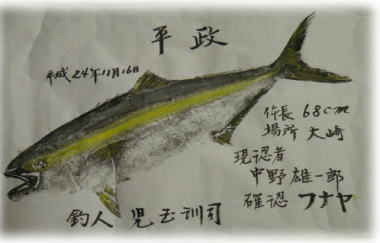 平政
平成24年11月16日
体長 68cm
場所 大崎
現認者
中野雄一郎
確認 フナヤ
釣人 児玉訓司